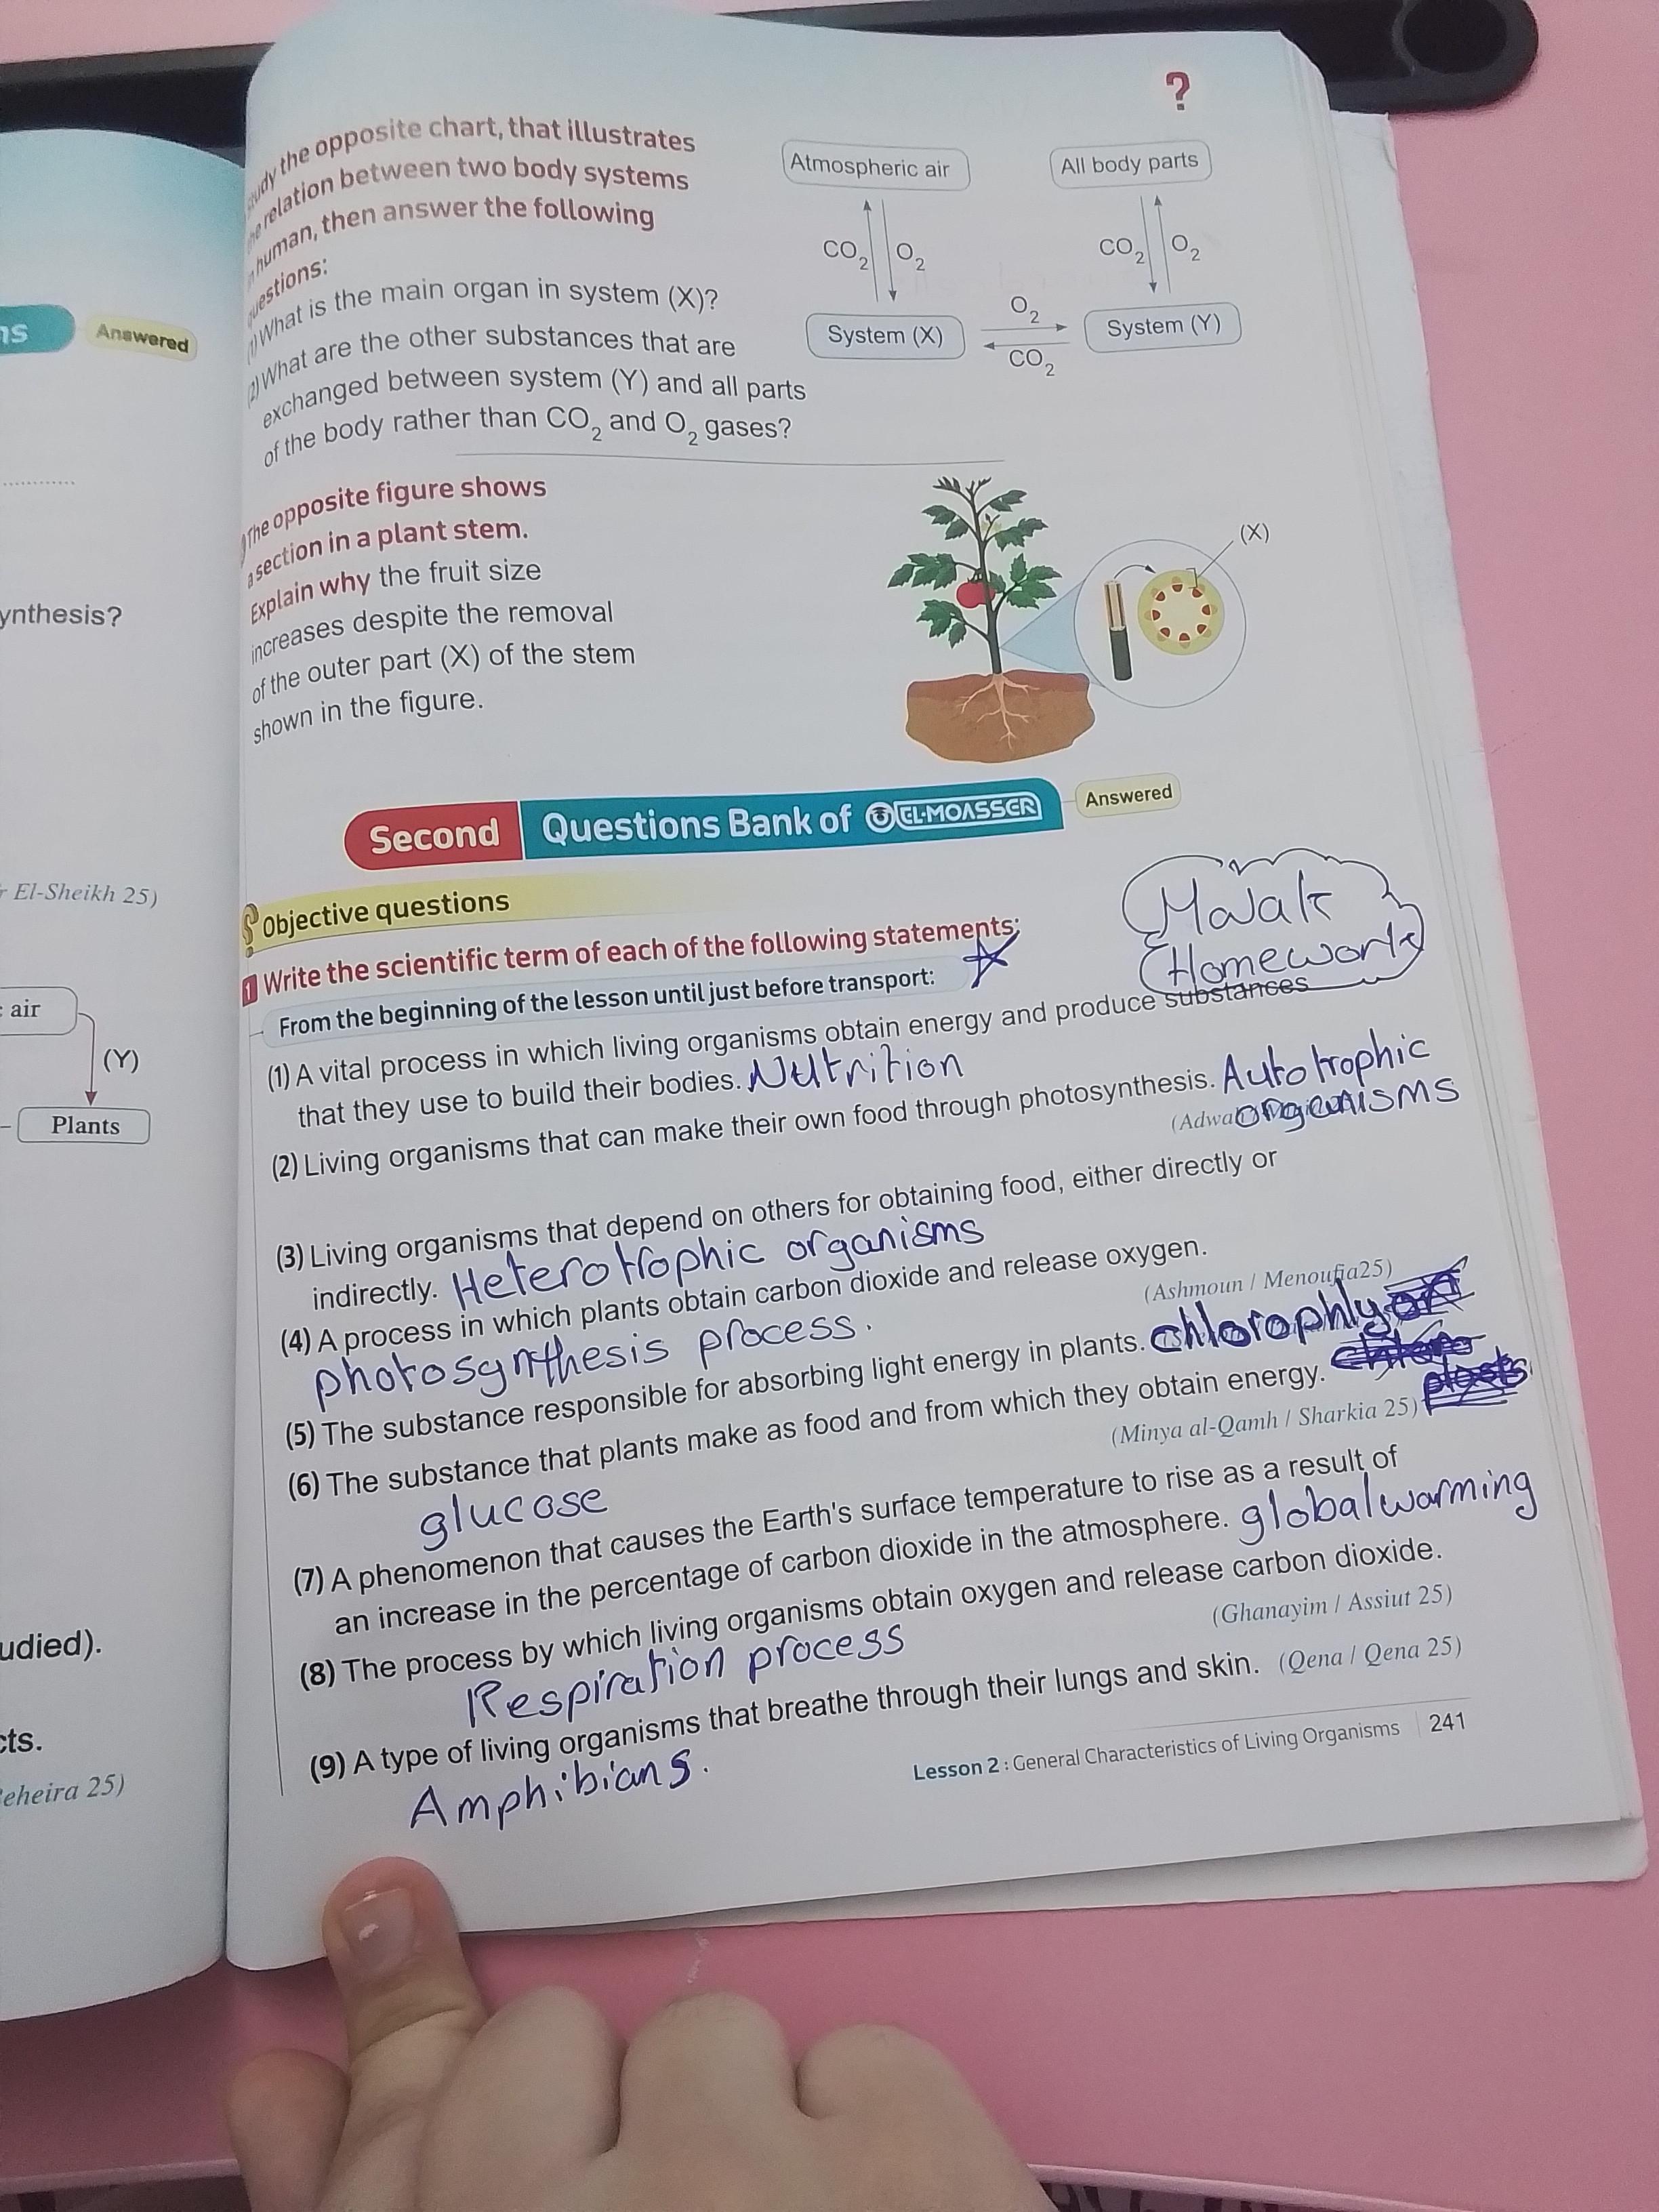 ns
Answered
ynthesis?
El-Sheikh 25)
air
(Y)
Plants
udied).
cts.
eheira 25)
?
the opposite chart, that illustrates
relation between two body systems
human, then answer the following
uestions:
(1) What is the main organ in system (X)?
(2) What are the other substances that are
exchanged between system (Y) and all parts
of the body rather than CO2 and O2 gases?
Atmospheric air
All body parts
CO2
O2
CO2
O2
System (X)
O2
CO2
System (Y)
The opposite figure shows
a section in a plant stem.
Explain why the fruit size
increases despite the removal
of the outer part (X) of the stem
shown in the figure.
(X)
Second
Questions Bank of EL-MOASSER
Answered
Objective questions
Homework
1 Write the scientific term of each of the following statements:
From the beginning of the lesson until just before transport:
(1) A vital process in which living organisms obtain energy and produce substances
that they use to build their bodies. Nutrition
(2) Living organisms that can make their own food through photosynthesis. Autotrophic
organisms
(3) Living organisms that depend on others for obtaining food, either directly or
indirectly. Heterotrophic organisms
(4) A process in which plants obtain carbon dioxide and release oxygen.
(Ashmoun / Menoufia25)
photosynthesis process.
(5) The substance responsible for absorbing light energy in plants. chlorophly
(6) The substance that plants make as food and from which they obtain energy.
(Minya al-Qamh / Sharkia 25)
glucose
(7) A phenomenon that causes the Earth's surface temperature to rise as a result of
an increase in the percentage of carbon dioxide in the atmosphere. global warming
(8) The process by which living organisms obtain oxygen and release carbon dioxide.
(Ghanayim / Assiut 25)
Respiration process
(9) A type of living organisms that breathe through their lungs and skin. (Qena / Qena 25)
Amphibians.
Lesson 2 : General Characteristics of Living Organisms 241